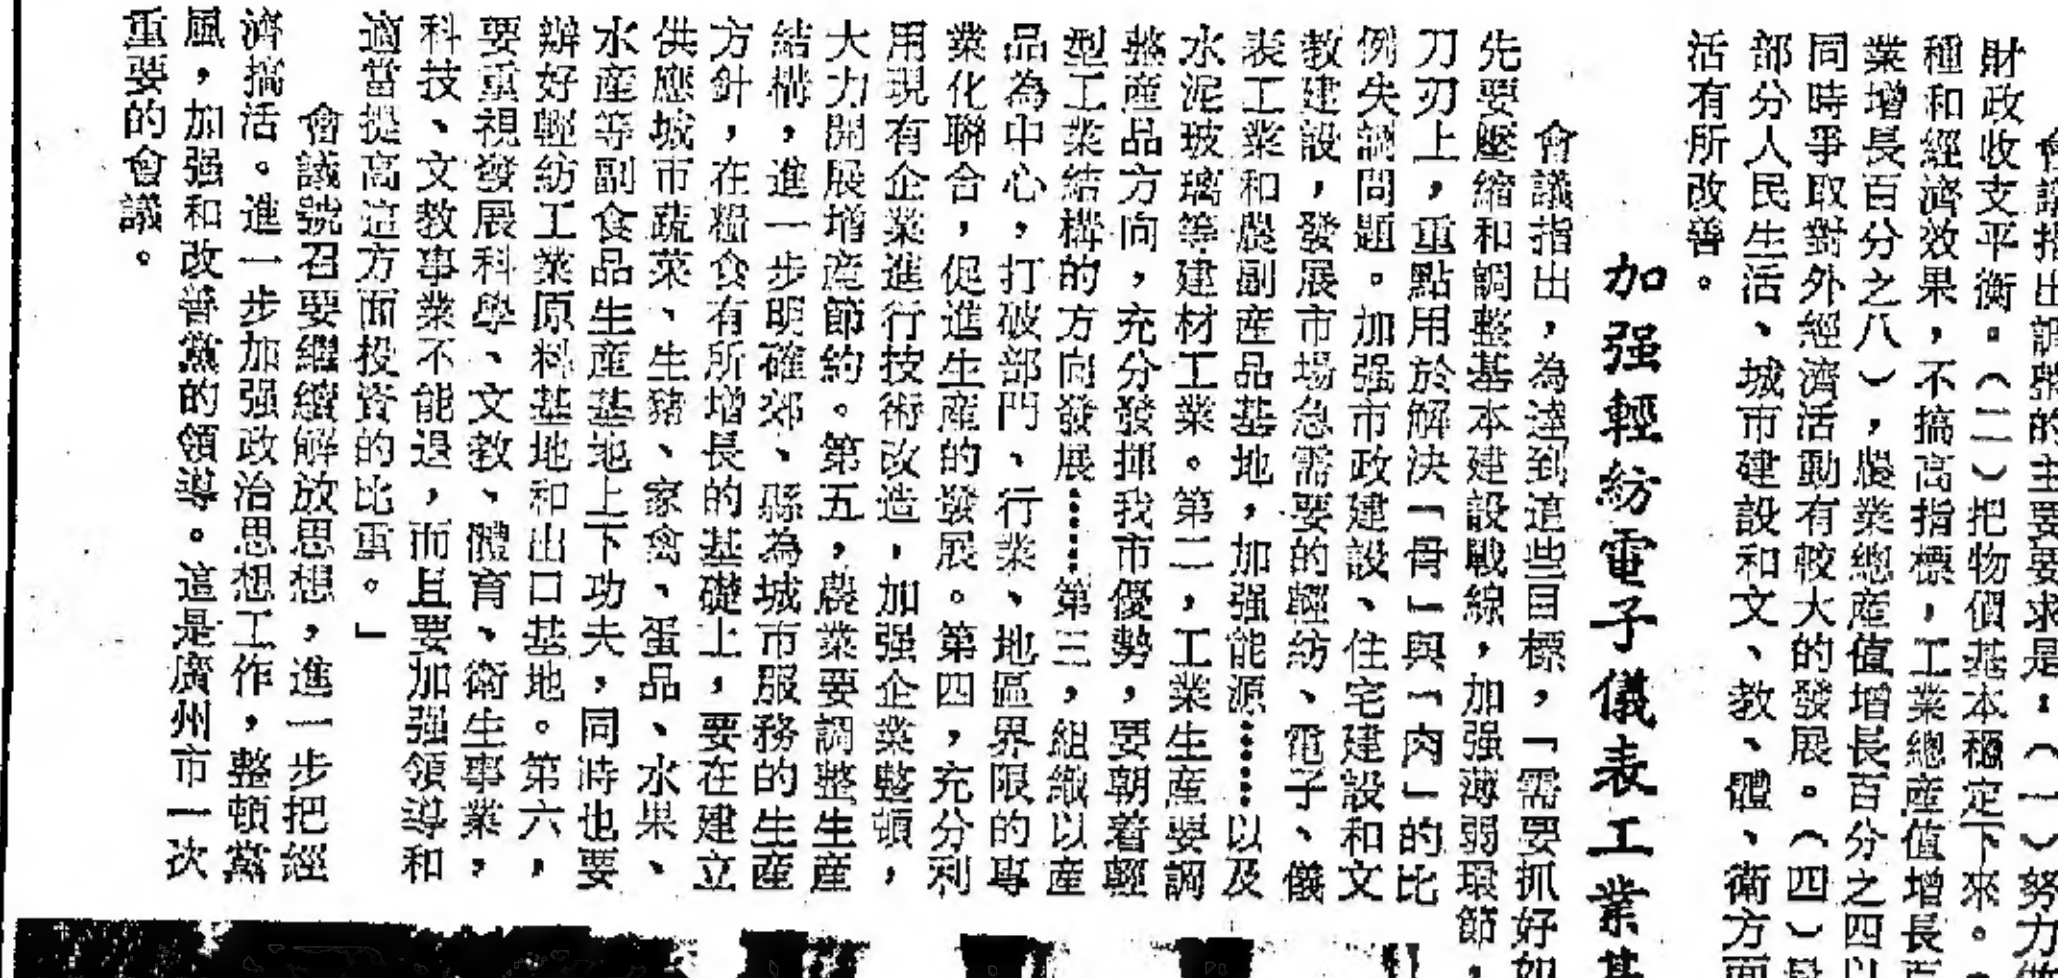 會議指出調整的主要要求是：（一）努力做
財政收支平衡。（二）把物價基本穩定下來。
種和經濟效果，不搞高指標，工業總產值增長百
業增長百分之八），農業總產值增長百分之四以
同時爭取對外經濟活動有較大的發展。（四）是
部分人民生活、城市建設和文、教、體、衛方面
活有所改善。
加强輕紡電子儀表工業基
會議指出，為達到這些目標，「需要抓好如
先要壓縮和調整基本建設戰線，加强薄弱環節，
刀刃上，重點用於解決「骨」與「肉」的比
例失調問題。加强市政建設、住宅建設和文
教建設，發展市場急需要的輕紡、電子、儀
表工業和農副產品基地，加强能源……以及
水泥玻璃等建材工業。第二，工業生產要調
整產品方向，充分發揮我市優勢，要朝着輕
型工業結構的方向發展……第三，組織以產
品為中心，打破部門、行業、地區界限的專
業化聯合，促進生產的發展。第四，充分利
用現有企業進行技術改造，加强企業整頓，
大力開展增產節約。第五，農業要調整生產
結構，進一步明確郊、縣為城市服務的生產
方針，在糧食有所增長的基礎上，要在建立
供應城市蔬菜、生豬、家禽、蛋品、水果、
水產等副食品生產基地上下功夫，同時也要
辦好輕紡工業原料基地和出口基地。第六，
要重視發展科學、文教、體育、衛生事業，
科技、文教事業不能退，而且要加强領導和
適當提高這方面投資的比重。」
會議號召要繼續解放思想，進一步把經
濟搞活。進一步加强政治思想工作，整頓黨
風，加强和改善黨的領導。這是廣州市一次
重要的會議。